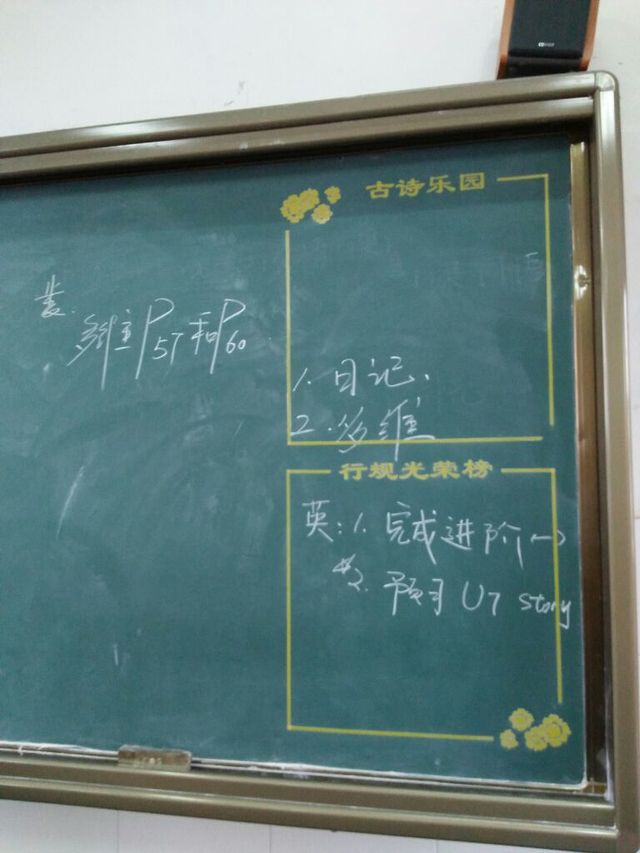 古诗乐园
多维P57和P60
1. 日记、
2. 多维
行规光荣榜
英:1. 完成进阶(一)
2. 预习 U7 story